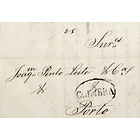 25
Snrs
Joaqm Pinto Leite & Ca
COIMBRA
Porto